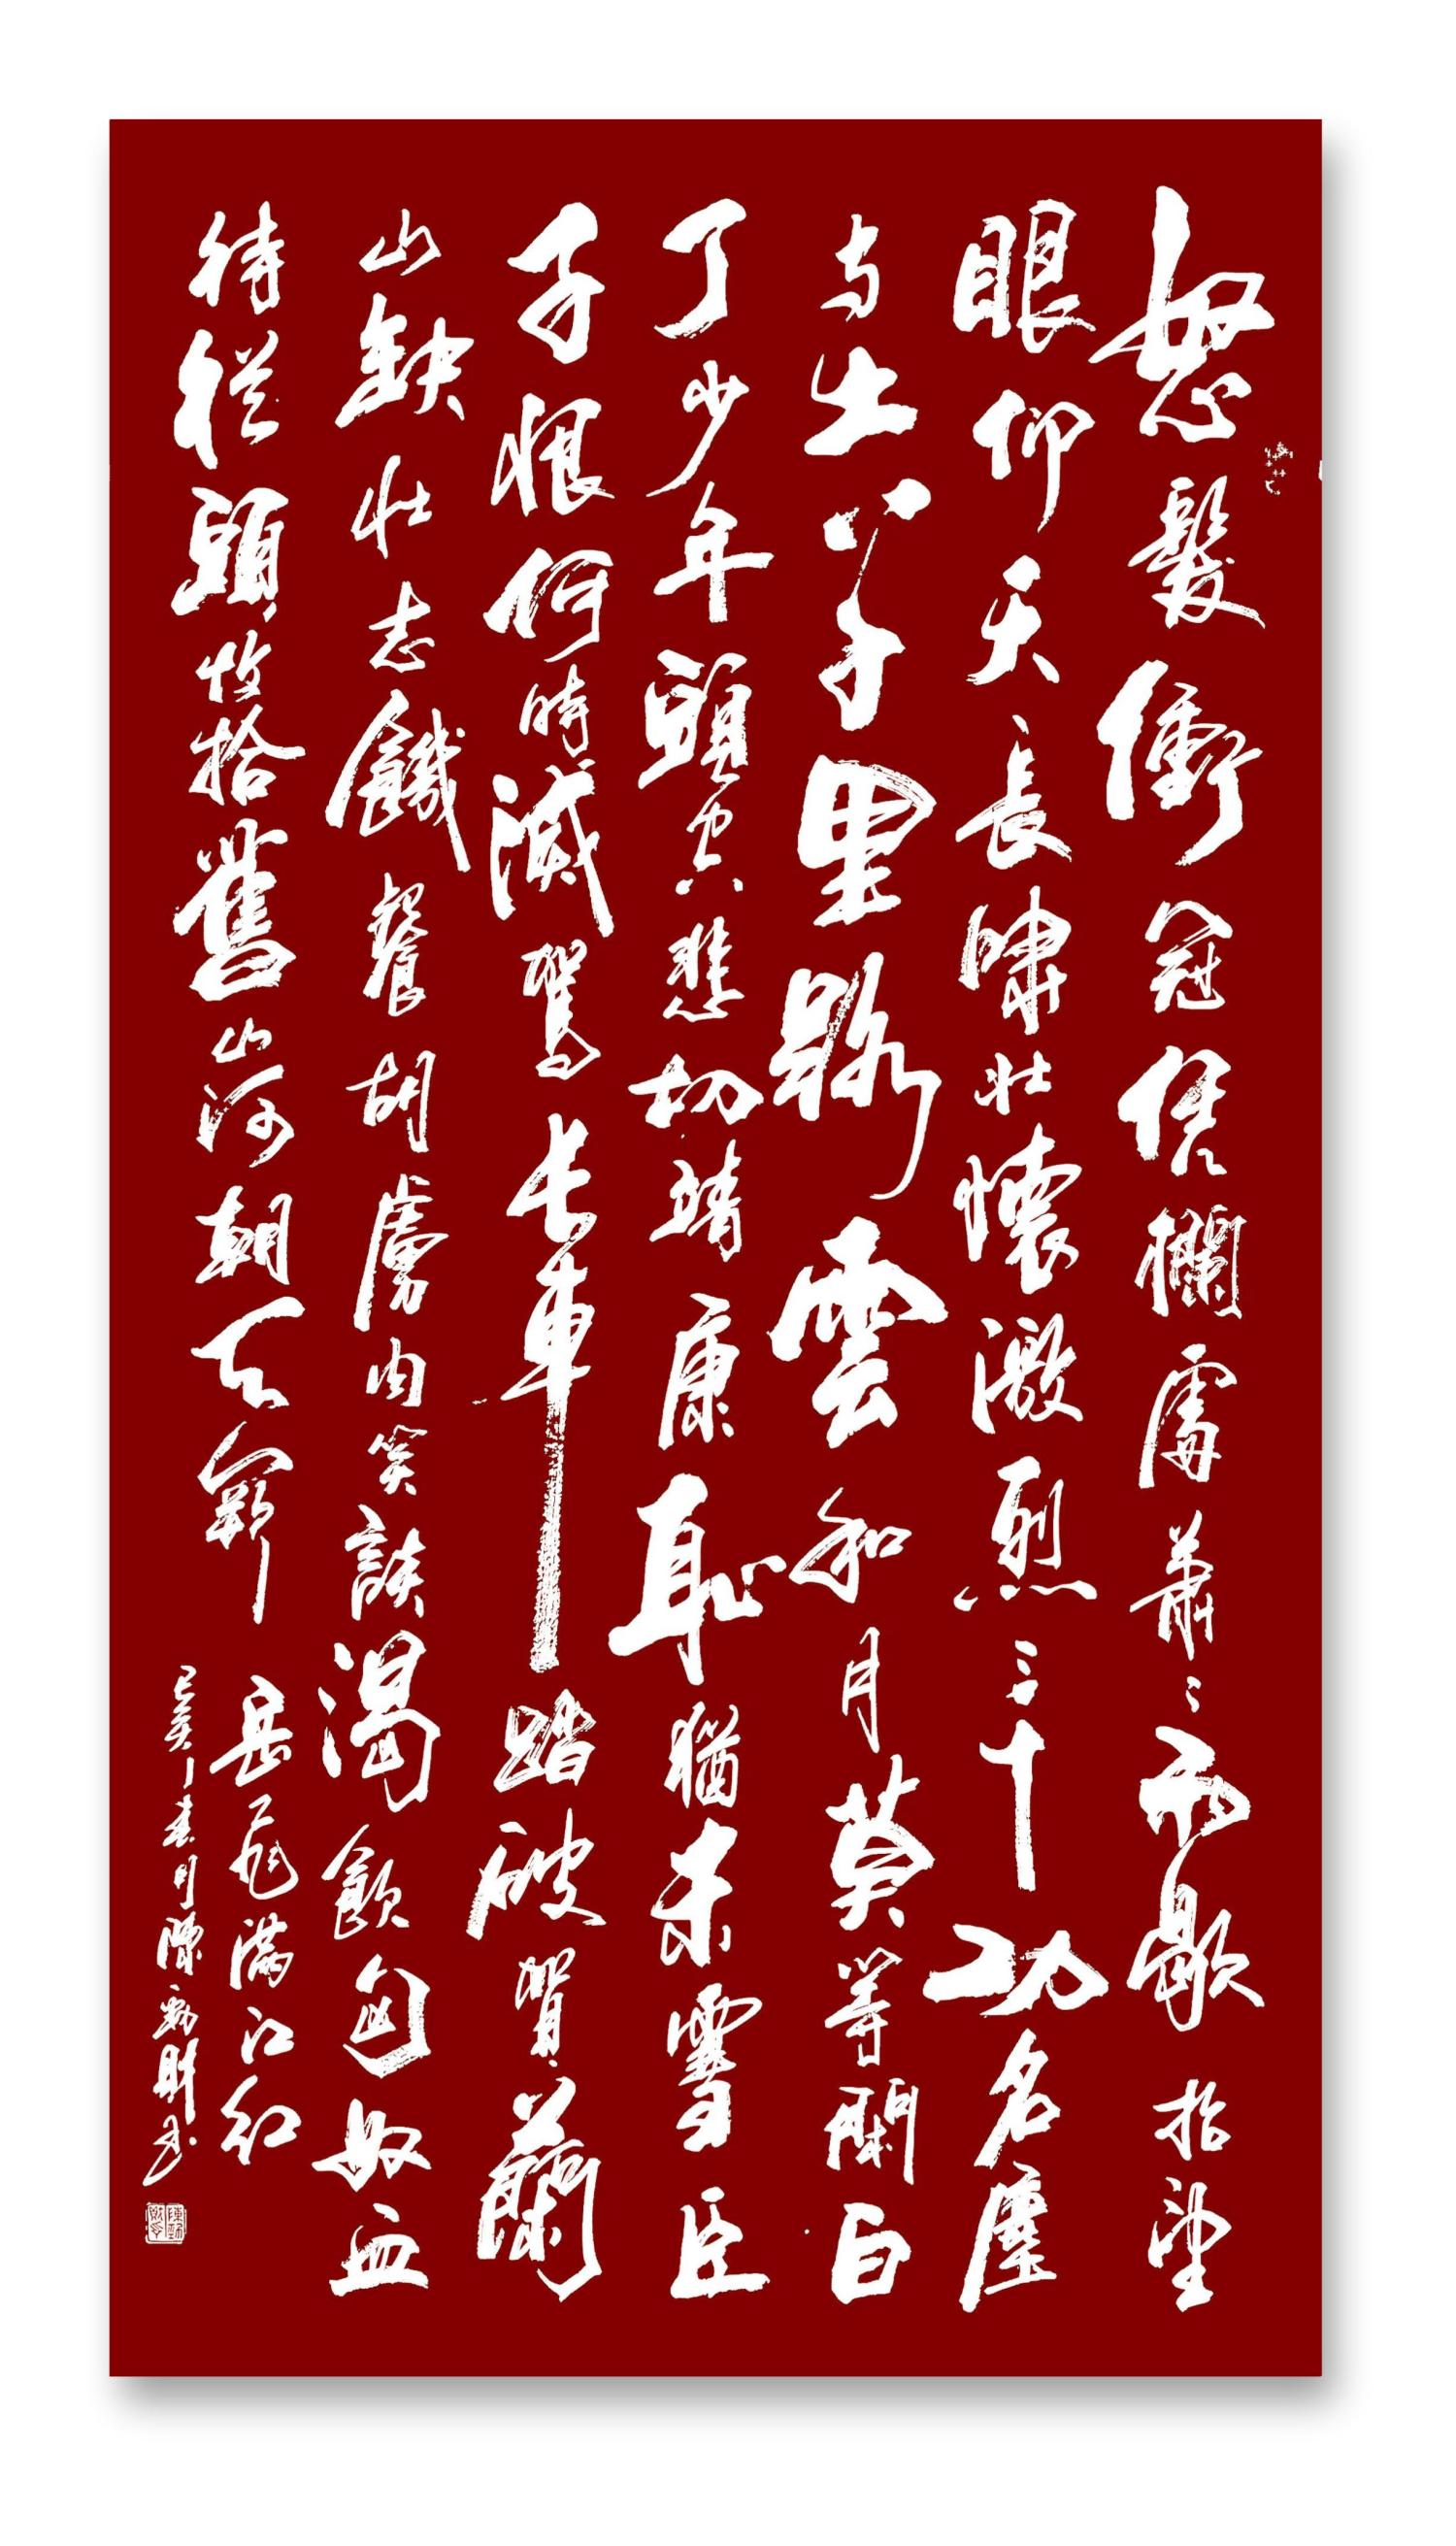 怒髮衝冠凭欄處蕭々雨歇抬望
眼仰天長嘯壯懷激烈三十功名塵
与土八千里路雲和月莫等閑白
了少年頭空悲切靖康耻猶未雪臣
子恨何時滅駕長車踏破賀蘭
山缺壯志饑餐胡虜肉笑談渴飲匈奴血
待從頭收拾舊山河朝天闕
岳飛滿江紅
春月陳